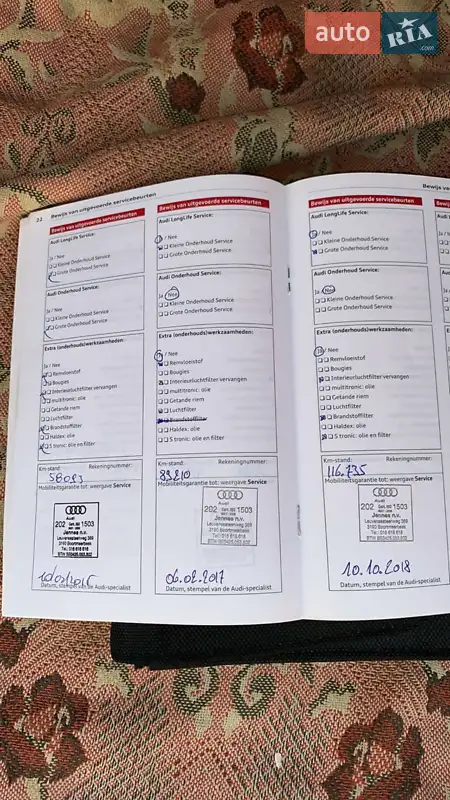 auto RIA
.com
22 Bewijs van uitgevoerde servicebeurten
Bewijs van uitgevoerde servicebeurten
Audi LongLife Service:
Ja / Nee
Kleine Onderhoud Service
Grote Onderhoud Service
Audi Onderhoud Service:
Ja / Nee
Kleine Onderhoud Service
Grote Onderhoud Service
Extra (onderhouds)werkzaamheden:
Ja / Nee
Remvloeistof
Bougies
Interieurluchtfilter vervangen
multitronic: olie
Getande riem
Luchtfilter
Brandstoffilter
Haldex: olie
S tronic: olie en filter
Km-stand: Rekeningnummer:
58093
Mobiliteitsgarantie tot: weergave Service
Audi
202 1503
Jennes n.v.
Leuvensesteenweg 369
3190 Boortmeerbeek
Tel.: 015 618 618
Datum, stempel van de Audi-specialist
Bewijs van uitgevoerde servicebeurten
Audi LongLife Service:
Ja / Nee
Kleine Onderhoud Service
Grote Onderhoud Service
Audi Onderhoud Service:
Ja / Nee
Kleine Onderhoud Service
Grote Onderhoud Service
Extra (onderhouds)werkzaamheden:
Ja / Nee
Remvloeistof
Bougies
Interieurluchtfilter vervangen
multitronic: olie
Getande riem
Luchtfilter
Brandstoffilter
Haldex: olie
S tronic: olie en filter
Km-stand: Rekeningnummer:
83210
Mobiliteitsgarantie tot: weergave Service
Audi
202 1503
Jennes n.v.
Leuvensesteenweg 369
3190 Boortmeerbeek
Tel.: 015 618 618
06.02.2017
Datum, stempel van de Audi-specialist
Bewijs va
Bewijs van uitgevoerde servicebeurten
Audi LongLife Service:
Ja / Nee
Kleine Onderhoud Service
Grote Onderhoud Service
Audi Onderhoud Service:
Ja / Nee
Kleine Onderhoud Service
Grote Onderhoud Service
Extra (onderhouds)werkzaamheden:
Ja / Nee
Remvloeistof
Bougies
Interieurluchtfilter vervangen
multitronic: olie
Getande riem
Luchtfilter
Brandstoffilter
Haldex: olie
S tronic: olie en filter
Km-stand: Rekeningnummer:
116.735
Mobiliteitsgarantie tot: weergave Service
Audi
202 1503
Jennes n.v.
Leuvensesteenweg 369
3190 Boortmeerbeek
Tel.: 015 618 618
10.10.2018
Datum, stempel van de Audi-specialist